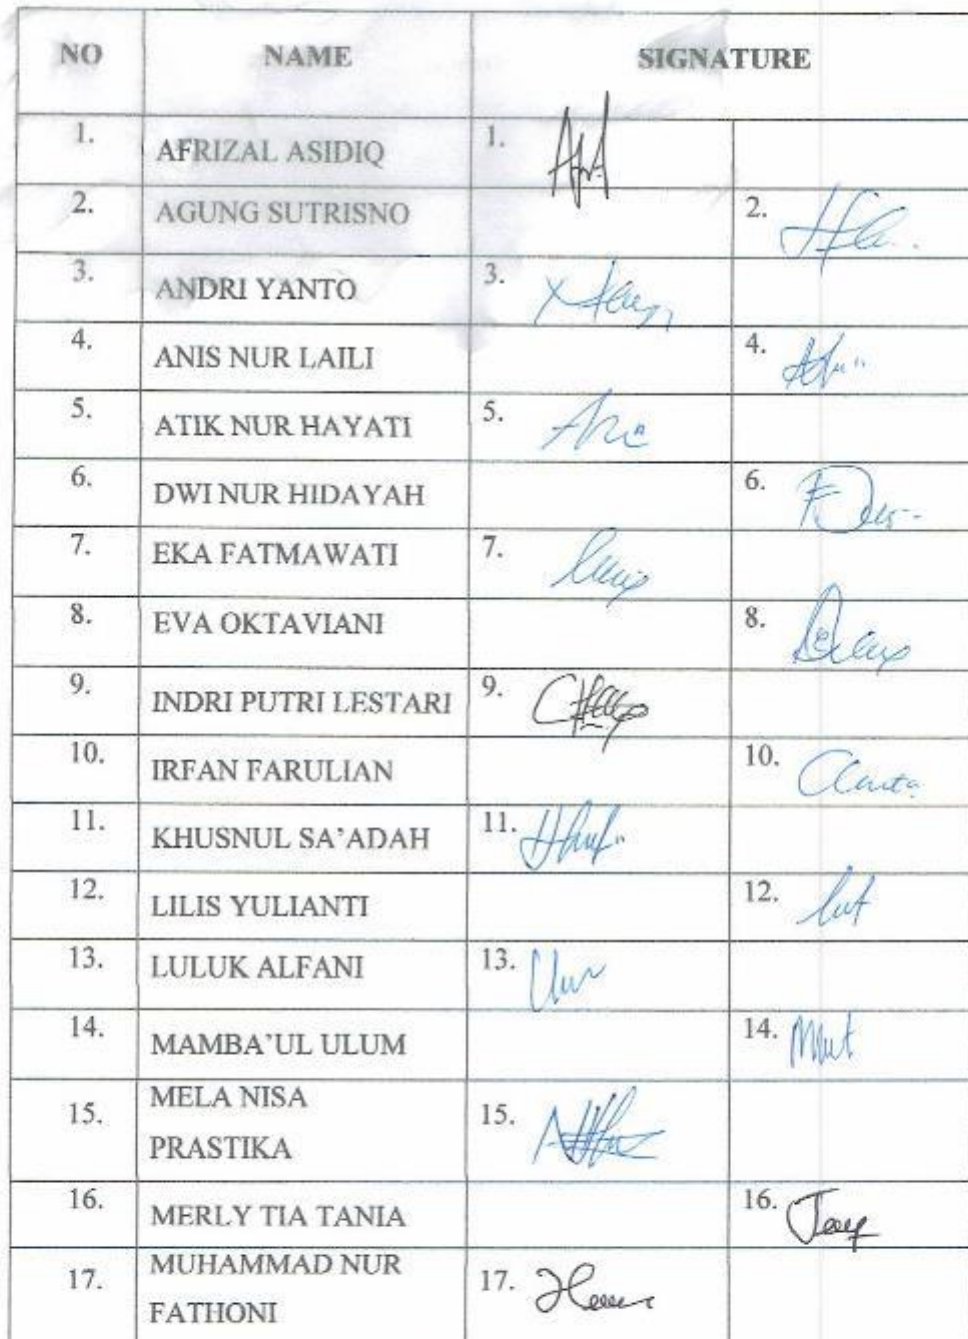 NO NAME SIGNATURE
1. AFRIZAL ASIDIQ 1.
2. AGUNG SUTRISNO 2.
3. ANDRI YANTO 3.
4. ANIS NUR LAILI 4.
5. ATIK NUR HAYATI 5.
6. DWI NUR HIDAYAH 6.
7. EKA FATMAWATI 7.
8. EVA OKTAVIANI 8.
9. INDRI PUTRI LESTARI 9.
10. IRFAN FARULIAN 10.
11. KHUSNUL SA’ADAH 11.
12. LILIS YULIANTI 12.
13. LULUK ALFANI 13.
14. MAMBA’UL ULUM 14.
15. MELA NISA
PRASTIKA 15.
16. MERLY TIA TANIA 16.
17. MUHAMMAD NUR
FATHONI 17.